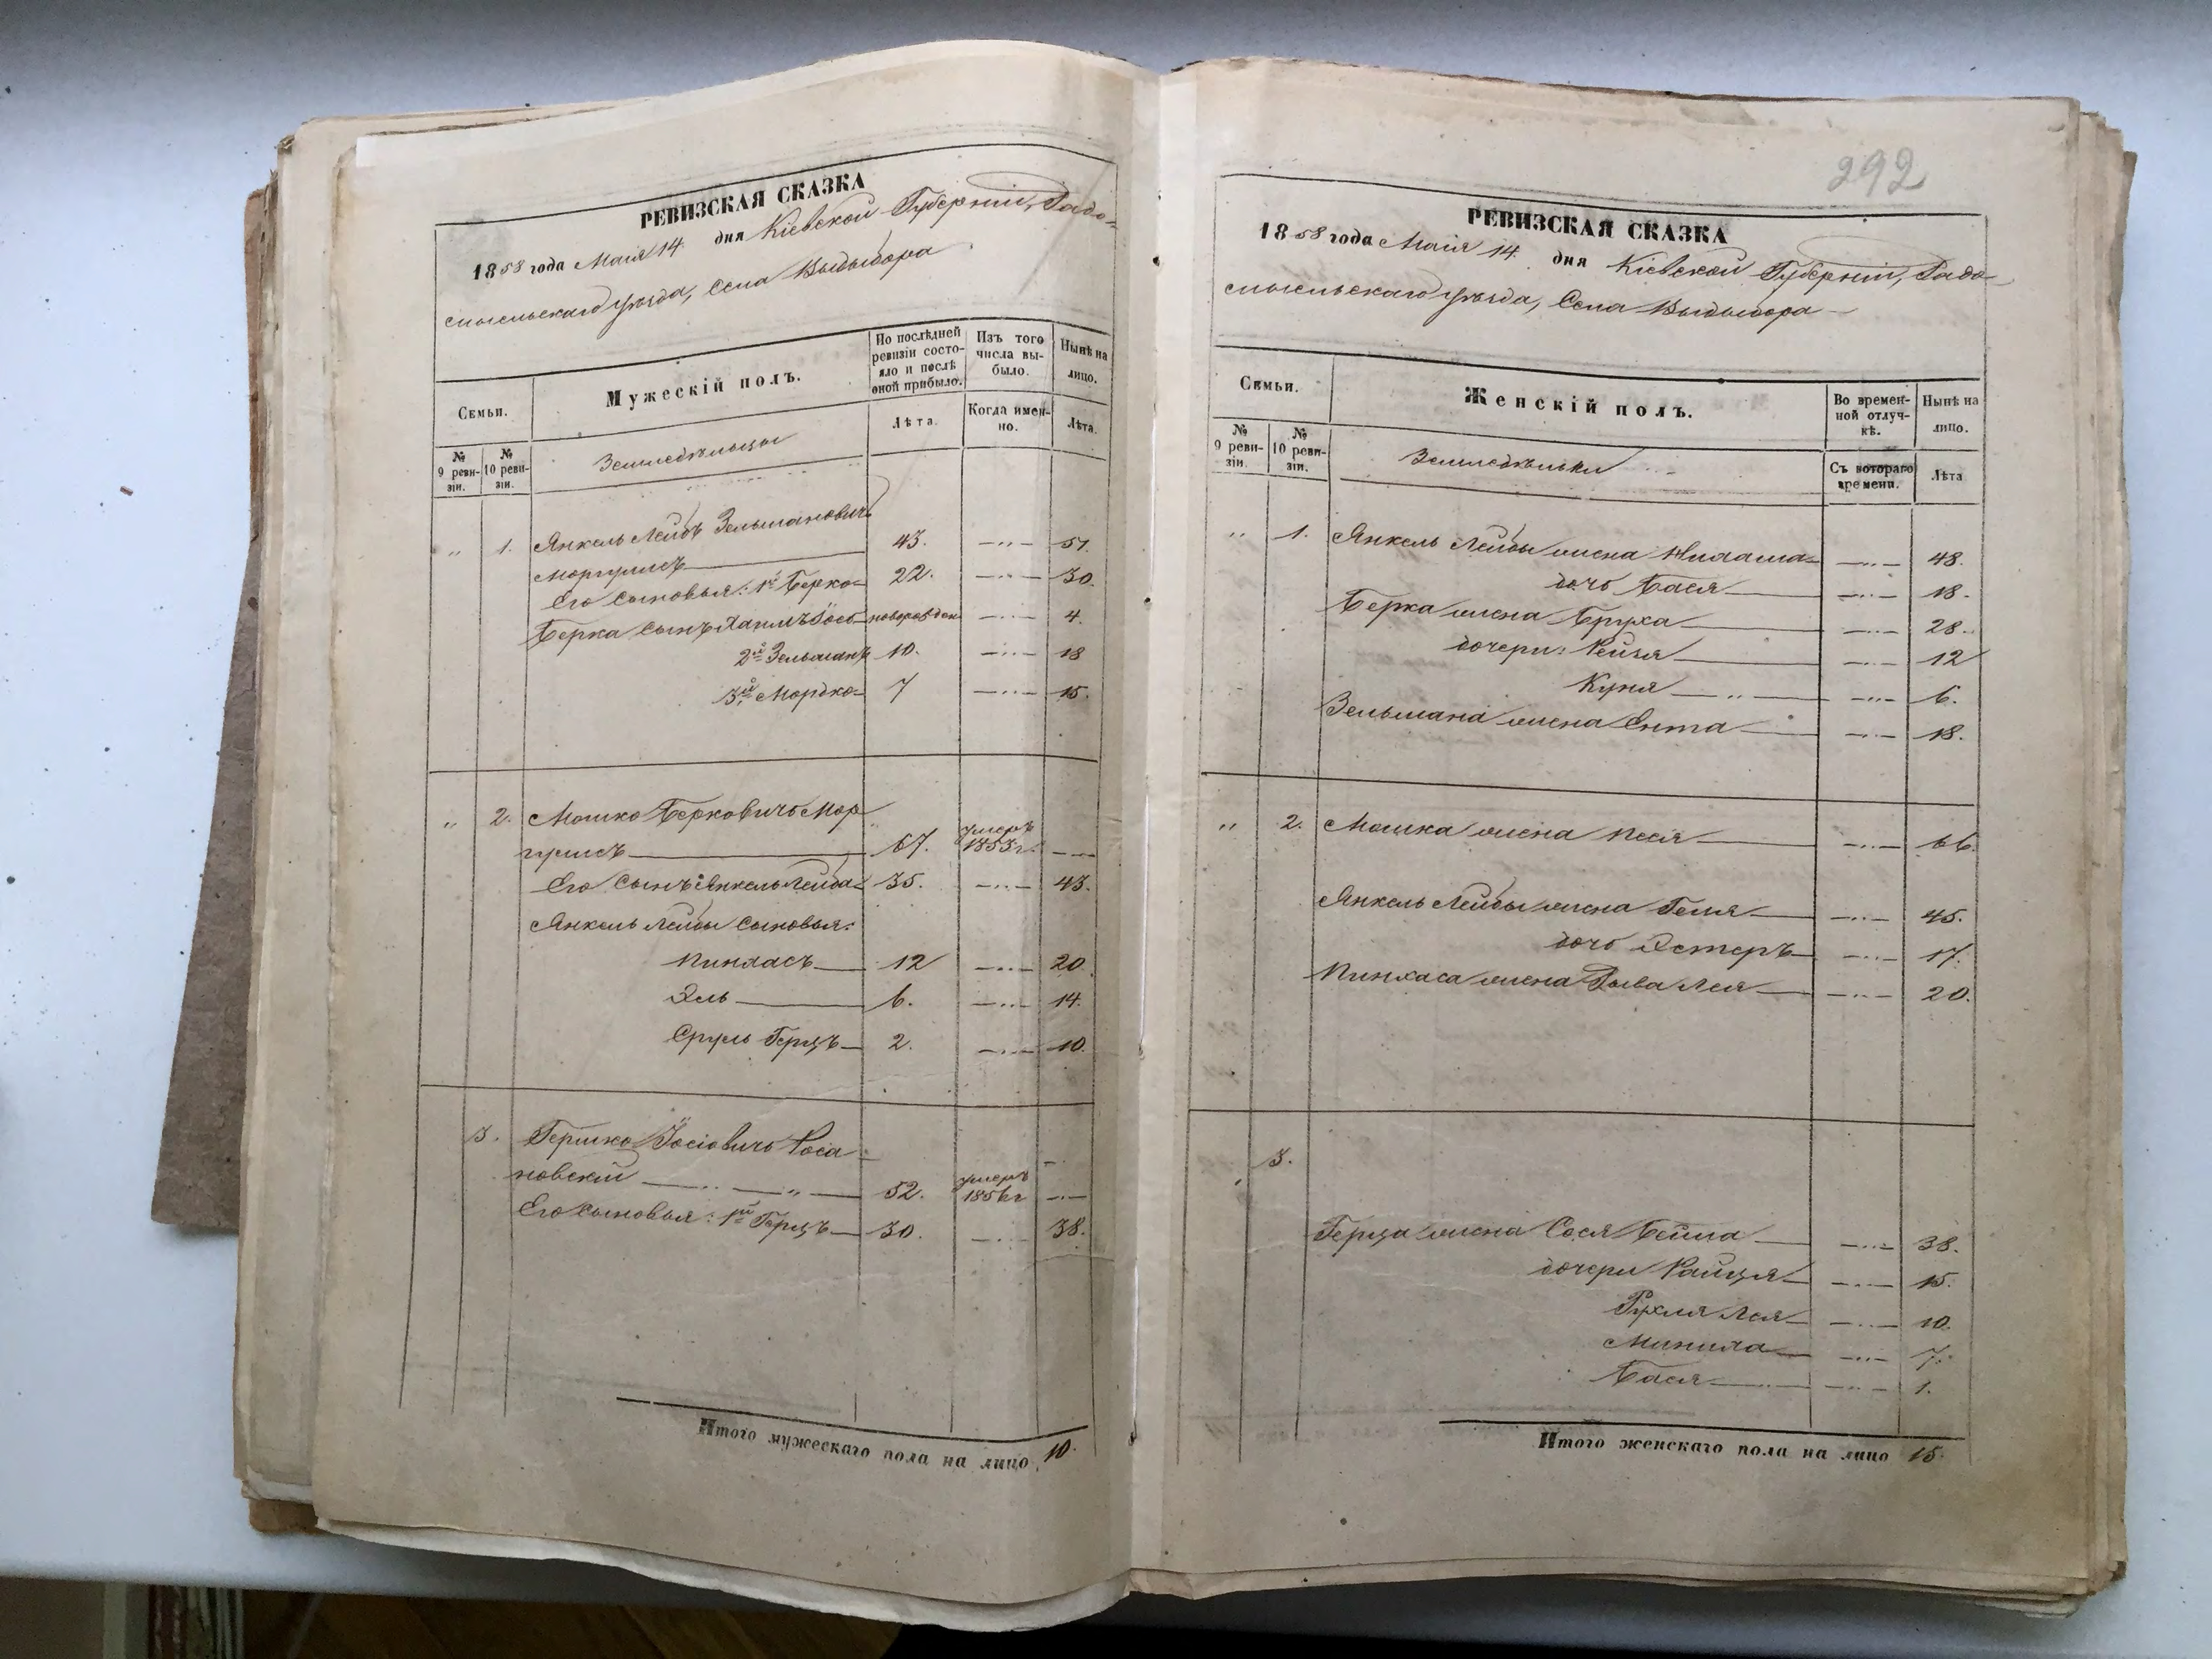 РЕВИЗСКАЯ СКАЗКА
1858 года Маія 14 дня Кіевской Губерніи, Радо-
мысльскаго уѣзда, Села Выдыбора
Семьи.
Мужескій полъ.
По послѣдней ревизіи состояло и послѣ оной прибыло.
Изъ того числа выбыло.
Нынѣ на лицо.
№ 9 ревизіи.
№ 10 ревизіи.
Земледѣльцы
Лѣта.
Когда именно.
Лѣта.
„ 1. Янкель Лейбъ Зельмановичъ
Моргулисъ 43. —„— 51.
Его сыновья: 1й Берко 22. —„— 30.
Берка сынъ Хаимъ Іось новорожден —„— 4.
2й Зельманъ 10. —„— 18
3й Мордко 7 —„— 15.
„ 2. Мошко Берковичъ Мор-
гулисъ 67. умеръ 1853 г. —
Его сынъ Янкель Лейба 35. —„— 43.
Янкель Лейбы сыновья:
Пинхасъ 12 —„— 20.
Эль 6. —„— 14.
Сруль Герцъ 2. —„— 10.
3. Гершко Іосіовичъ Роса-
новскій —„— 52. умеръ 1856 г —
Его сыновья: 1й Герцъ 30. —„— 38.
Итого мужескаго пола на лицо 10.
292
РЕВИЗСКАЯ СКАЗКА
1858 года Маія 14 дня Кіевской Губерніи, Радо-
мысльскаго уѣзда, Села Выдыбора
Семьи.
Женскій полъ.
Во временной отлучкѣ.
Нынѣ на лицо.
№ 9 ревизіи.
№ 10 ревизіи.
Земледѣльки
Съ котораго времени.
Лѣта
„ 1. Янкель Лейбы жена —„— 48.
дочь Бася —„— 18.
Берка жена Бруха —„— 28.
дочери: Рейзя —„— 12
Куня —„— 6.
Зельмана жена Ента —„— 18.
„ 2. Мошка жена Песя —„— 66.
Янкель Лейбы жена Геня —„— 45.
дочь Эстеръ —„— 17.
Пинхаса жена Рыва Лея —„— 20.
3.
Герца жена Сося Бейла —„— 38.
дочери Райця —„— 15.
Рухля Лея —„— 10.
—„— 7.
Бася —„— 1.
Итого женскаго пола на лицо 15.